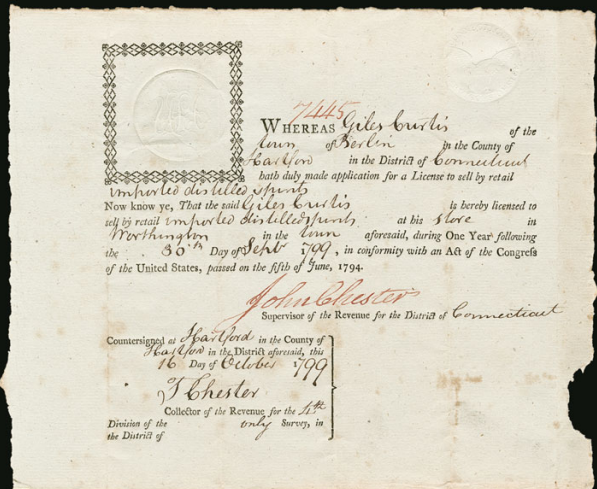 7445
WHEREAS Giles Curtis of the
town of Berlin in the County of
Hartford in the District of Connecticut
hath duly made application for a License to sell by retail
imported distilled spirits
Now know ye, That the said Giles Curtis is hereby licensed to
sell by retail imported distilled spirits at his store in
Worthington in the town aforesaid, during One Year following
the 30th Day of Sepbr 1799, in conformity with an Act of the Congress
of the United States, passed on the fifth of June, 1794.
John Chester
Supervisor of the Revenue for the District of Connecticut
Countersigned at Hartford in the County of
Hartford in the District aforesaid, this
16 Day of October 1799
T Chester
Collector of the Revenue for the 4th
Division of the only Survey, in
the District of